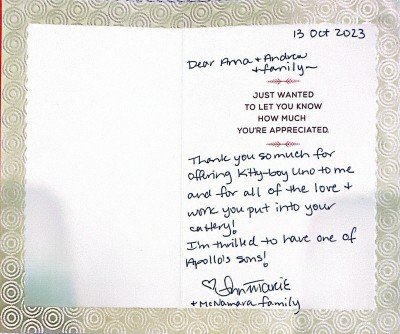 13 Oct 2023
Dear Anna & Andrew
& family~
JUST WANTED
TO LET YOU KNOW
HOW MUCH
YOU'RE APPRECIATED.
Thank you so much for
offering Kitty-boy Uno to me
and for all of the love &
work you put into your
cattery!
I'm thrilled to have one of
Apollo's sons!
♡ Marie
& McNamara family